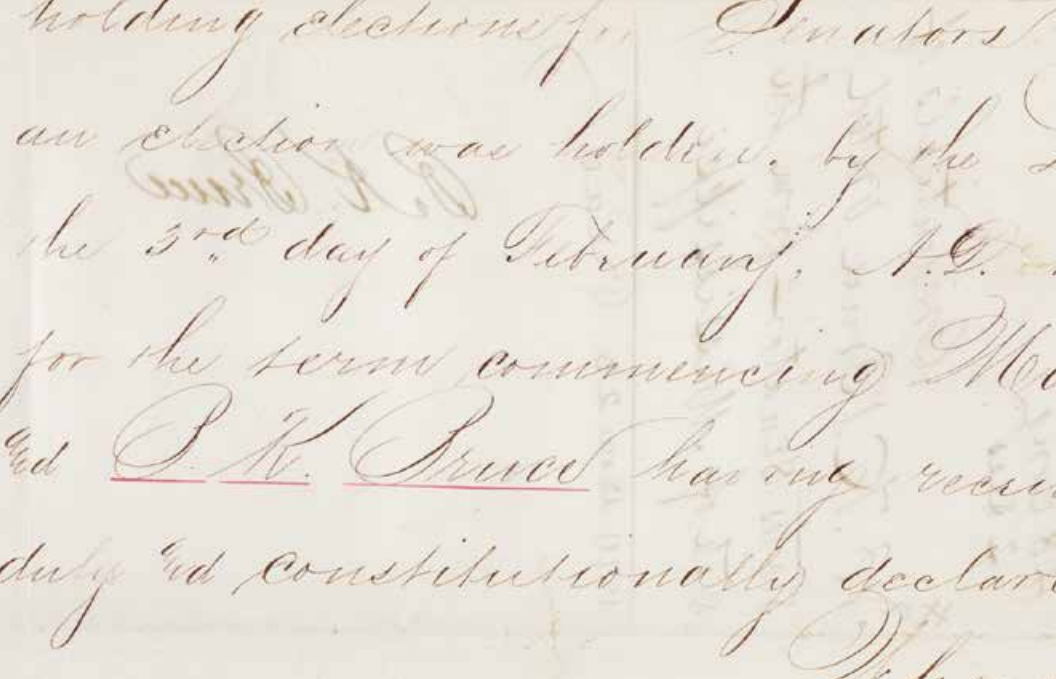 holding elections for Senators
an election was holden, by the
the 3rd day of February, A.D.
for the term commencing Ma
And B. K. Bruce having recei
duly and constitutionally declar